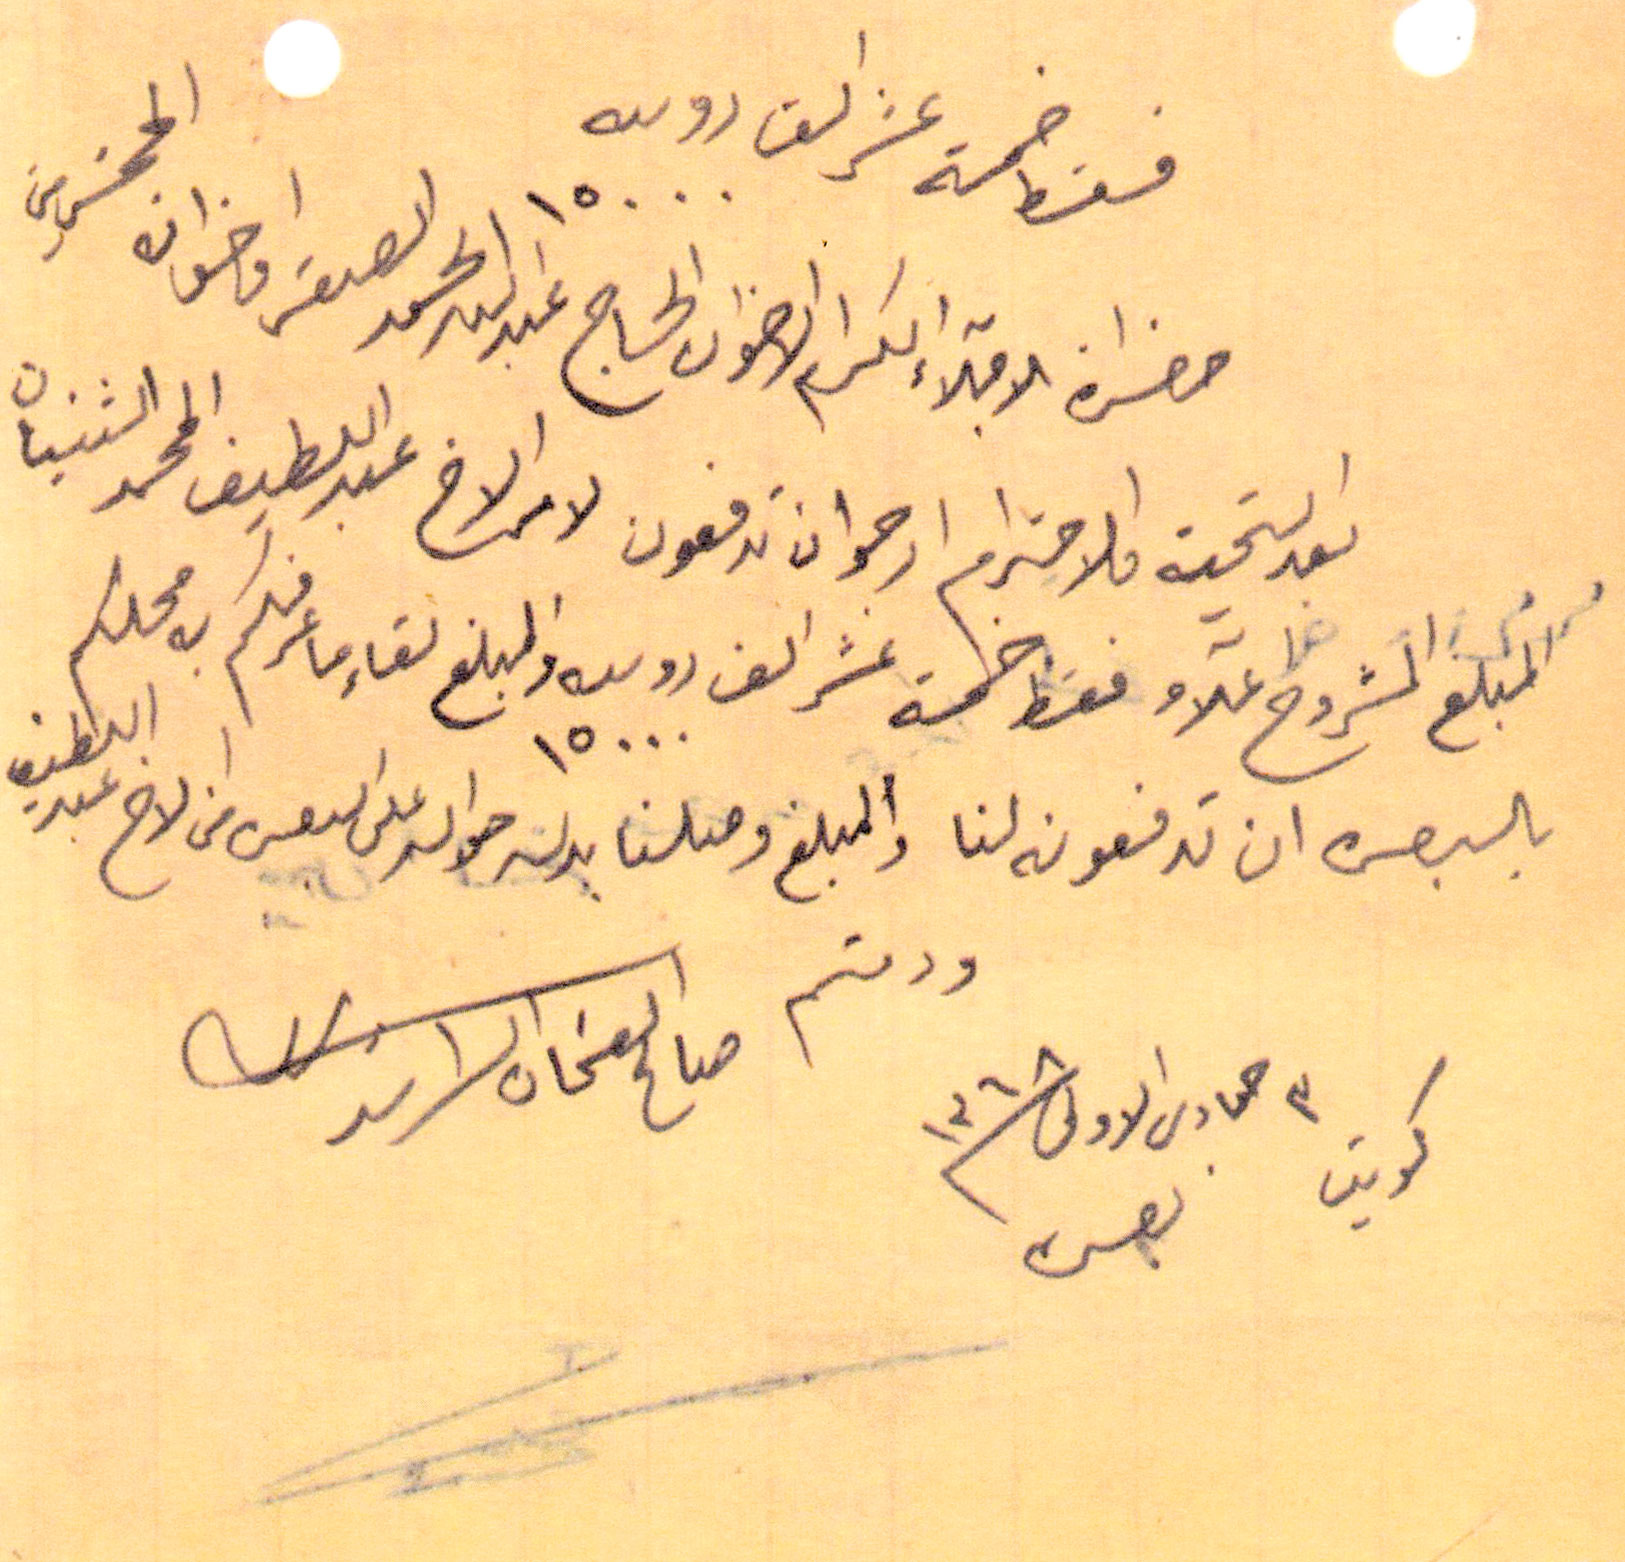 فقط خمسة عشر الف روبيه
١٥٠٠٠
حضرة الاجلاء الكرام الاخوان الحاج عبدالله الحمد الصقر واخوانه المحترمين
بعد التحية والاحترام ارجو ان تدفعون لامر الاخ عبد اللطيف المحمد الثنيان
المبلغ المشروح علاه فقط خمسة عشر الف روبيه والمبلغ لقاء ما عرفكم به محلكم
١٥٠٠٠
بالبصره ان تدفعونه لنا والمبلغ وصلنا بدله حواله على البصره من الاخ عبد اللطيف
ودمتم
صالح العثمان الراشد
كويت ٣ جمادى الاولى ١٣٦٨
بصره